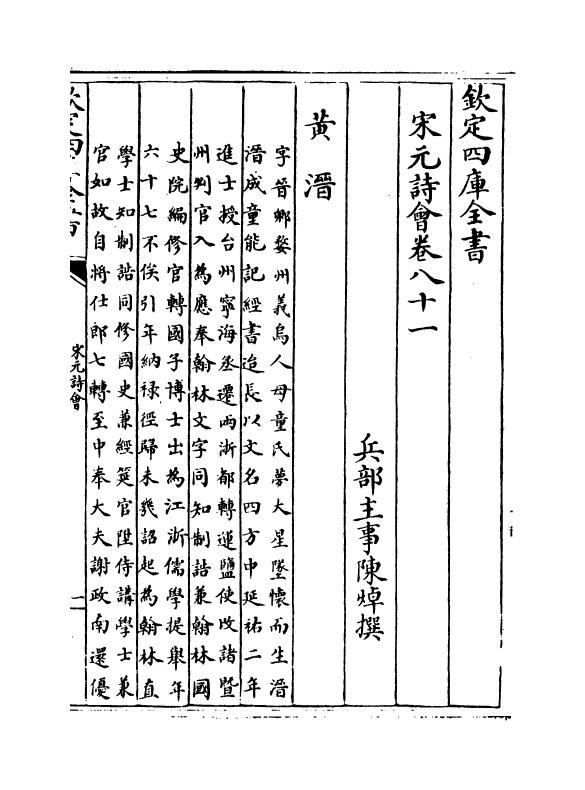 欽定四庫全書
宋元詩會卷八十一
兵部主事陳焯撰
黃溍
字晉卿婺州義烏人母童氏夢大星墜懷而生溍
溍成童能記經書迨長以文名四方中延祐二年
進士授台州寧海丞遷兩浙都轉運鹽使改諸暨
州判官入為應奉翰林文字同知制誥兼翰林國
史院編修官轉國子博士出為江浙儒學提舉年
六十七不俟引年納祿徑歸未幾詔起為翰林直
學士知制誥同修國史兼經筵官陞侍講學士兼
官如故自將仕郎七轉至中奉大夫謝政南還優
欽定四庫全書
宋元詩會
一